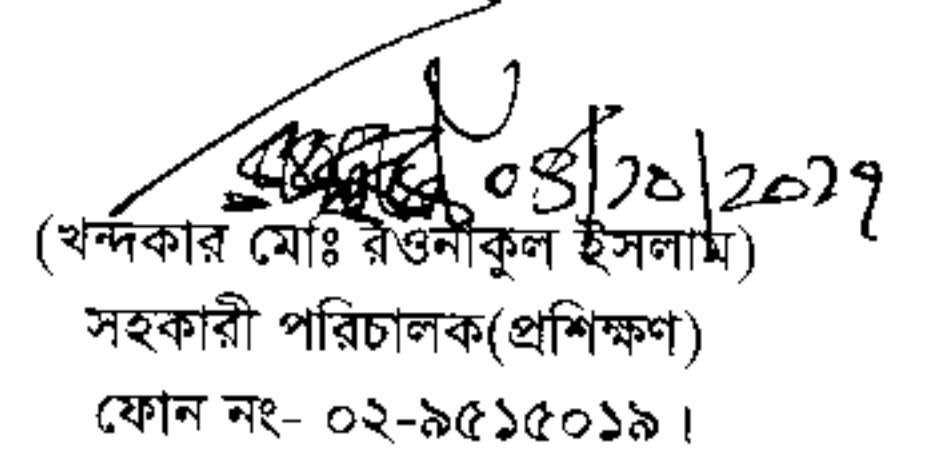 ০৪/১০/২০১৭
(খন্দকার মোঃ রওনাকুল ইসলাম)
সহকারী পরিচালক(প্রশিক্ষণ)
ফোন নং- ০২-৯৫১৫০১৯।